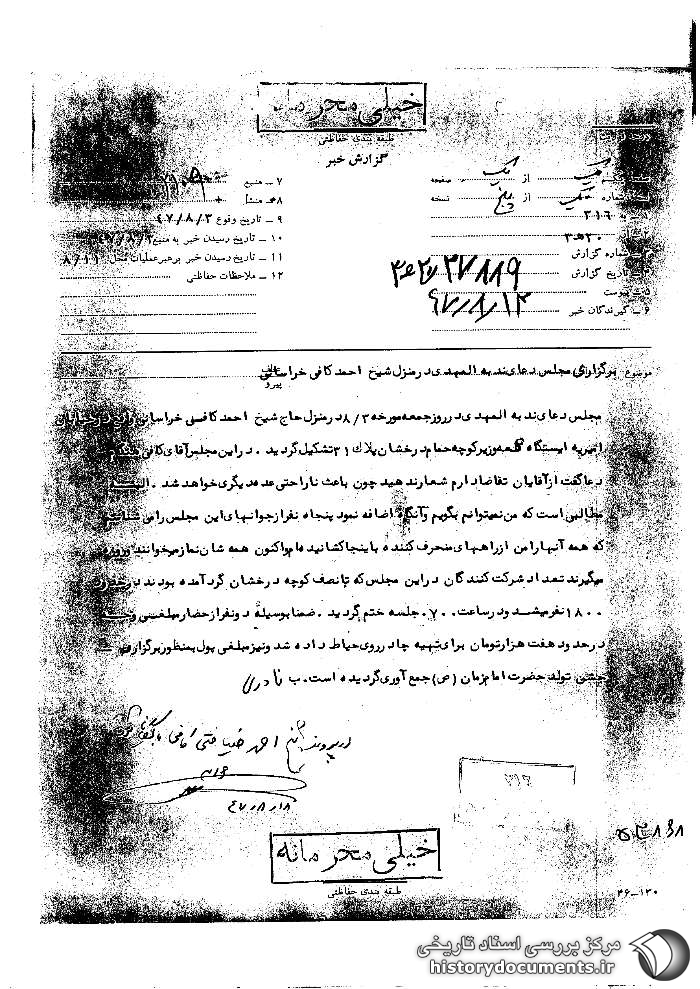 خیلی محرمانه
طبقه بندی حفاظتی
گزارش خبر
یک از یک صفحه
شماره یک از پنج نسخه
۳۱۶
۳۰ ه ۳
شماره گزارش
تاریخ گزارش ۴۷/۸/۱۲
۵ـ پیوست
۶ـ گیرندگان خبر
۷ـ منبع
۸ـ منشأ
۹ـ تاریخ وقوع ۴۷/۸/۳
۱۰ـ تاریخ رسیدن خبر به منبع
۱۱ـ تاریخ رسیدن خبر برهبرعملیات محل ۸/۱۱
۱۲ـ ملاحظات حفاظتی
موضوع برگزاری مجلس دعای ندبه المهدی در منزل شیخ احمد کافی خراسانی
پیرو
مجلس دعای ندبه المهدی در روز جمعه مورخه ۸/۳ در منزل حاج شیخ احمد کافی خراسانی واقع در خیابان
امیریه ایستگاه قلعه وزیر کوچه حمام درخشان پلاک ۳۱ تشکیل گردید . در این مجلس آقای کافی هنگام
دعا گفت از آقایان تقاضا دارم شعار ندهید چون باعث ناراحتی عده دیگری خواهد شد . البته
مطالبی است که من نمیتوانم بگویم وآنگاه اضافه نمود پنجاه نفر از جوانهای این مجلس را می شناسم
که همه آنها را من از راههای منحرف کننده باینجا کشانیده ام واکنون همه شان نماز میخوانند و روزه
میگیرند تعداد شرکت کنندگان در این مجلس که تا نصف کوچه درخشان گرد آمده بودند در حدود
۱۸۰۰ نفر میشد و در ساعت ۰۷۰۰ جلسه ختم گردید . ضمنا بوسیله دو نفر از حضار مبلغی وجه
در حدود هفت هزار تومان برای تهیه چادر روی حیاط داده شد و نیز مبلغی پول بمنظور برگزاری
جشن تولد حضرت امام زمان (ص) جمع آوری گردیده است . ب نادری
در پرونده احمد ضیافتی کافی بایگانی شود
۴۷/۸/۱۸
۳۱۶
خیلی محرمانه
طبقه بندی حفاظتی
۳۶-۱۲۰
مرکز بررسی اسناد تاریخی
historydocuments.ir